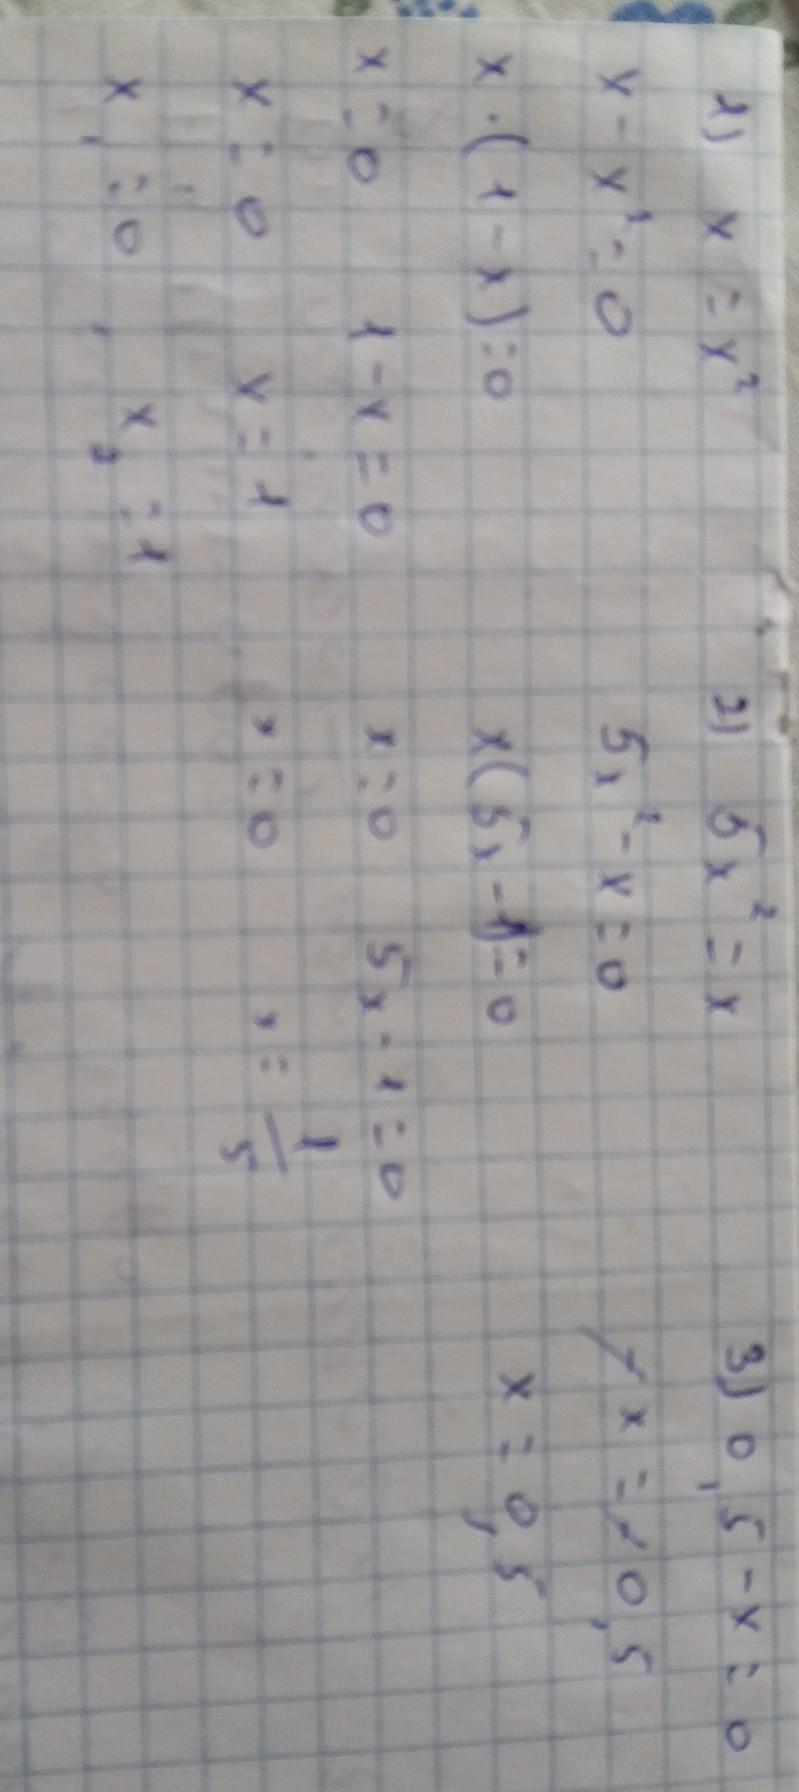 1) x = x²
x - x² = 0
x · (1 - x) = 0
x = 0 1 - x = 0
x = 0 x = 1
x₁ = 0, x₂ = 1
2) 5x² = x
5x² - x = 0
x(5x - 1) = 0
x = 0 5x - 1 = 0
x = 0 x = 1/5
3) 0,5 - x = 0
-x = -0,5
x = 0,5